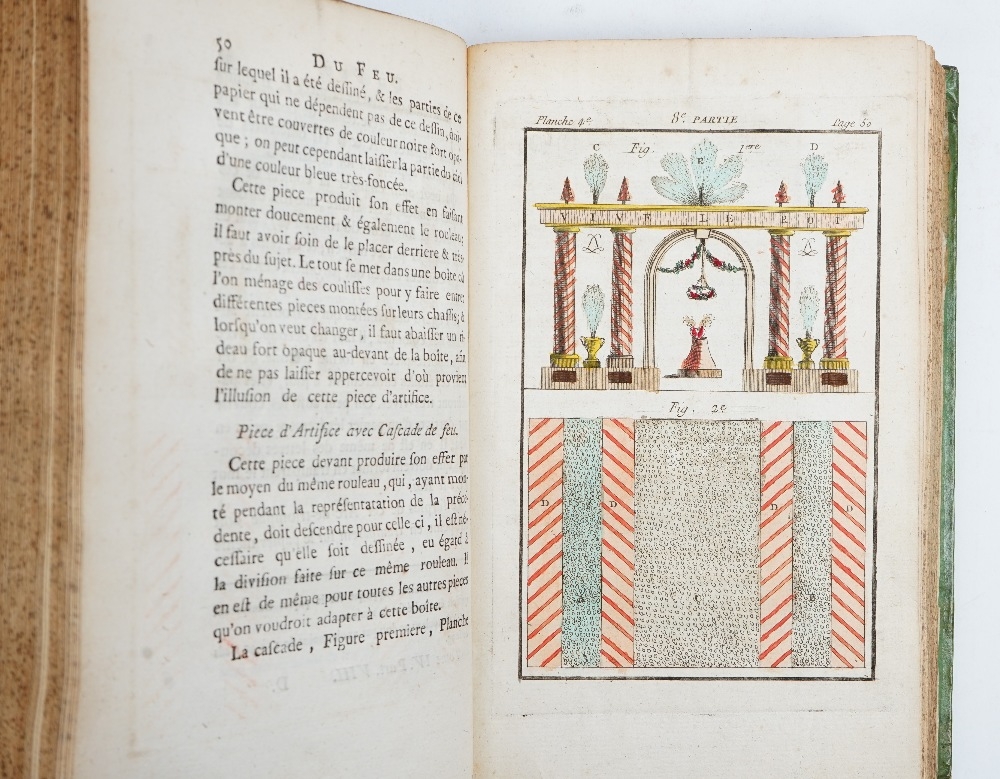 50
DU FEU.
sur lequel il a été dessiné, & les parties de ce
papier qui ne dépendent pas de ce dessin, doi-
vent être couvertes de couleur noire fort opa-
que ; on peut cependant laisser la partie du ciel
d'une couleur bleue très-foncée.
Cette piece produit son effet en faisant
monter doucement & également le rouleau;
il faut avoir soin de le placer derriere & très-
près du sujet. Le tout se met dans une boîte où
l'on ménage des coulisses pour y faire entrer
différentes pieces montées sur leurs chassis; &
lorsqu'on veut changer, il faut abaisser un ri-
deau fort opaque au-devant de la boîte, afin
de ne pas laisser appercevoir d'où provient
l'illusion de cette piece d'artifice.
Piece d'Artifice avec Cascade de feu.
Cette piece devant produire son effet par
le moyen du même rouleau, qui, ayant mon-
té pendant la représentatation de la précé-
dente, doit descendre pour celle ci, il est né-
cessaire qu'elle soit dessinée, eu égard à
la division faite sur ce même rouleau. Il
en est de même pour toutes les autres pieces
qu'on voudroit adapter à cette boîte.
La cascade, Figure premiere, Planche
D
Planche 4e 8e PARTIE Page 50
C Fig. E 1ere D
VIVE LE ROI
Fig. 2e
D D D D
A C B